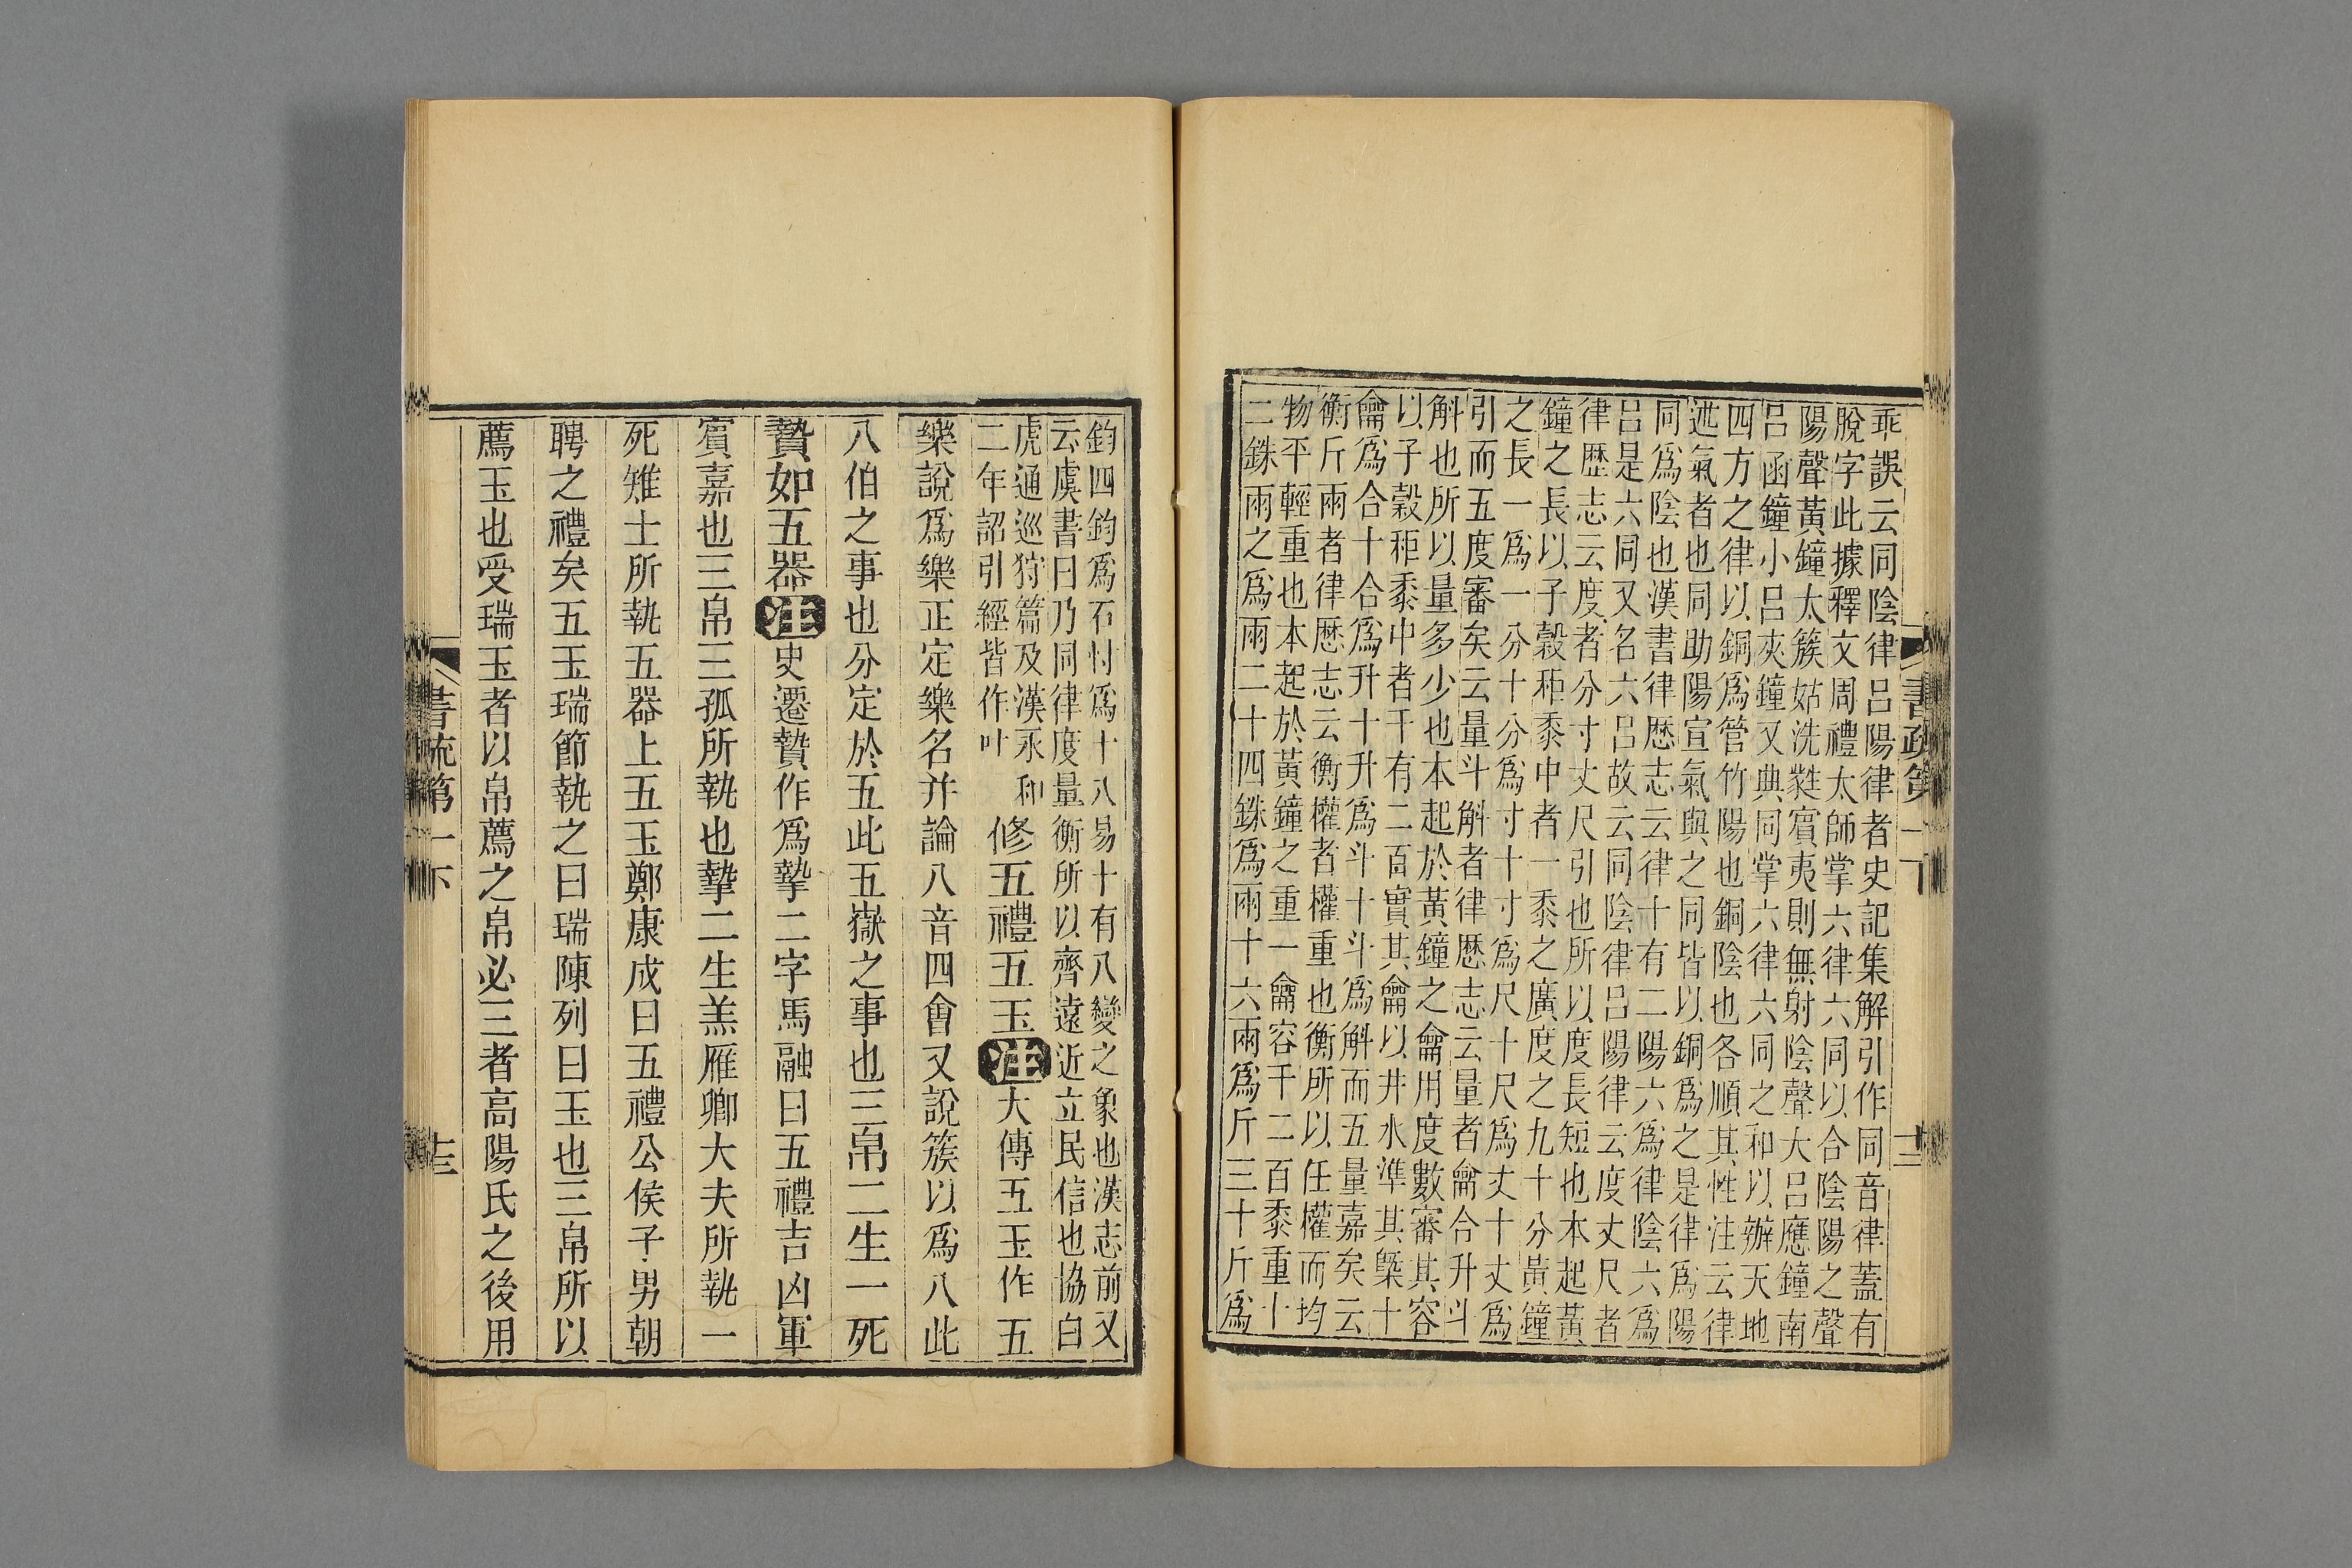 乖誤云同陰律呂陽律者史記集解引作同音律蓋有
脫字此據釋文周禮太師掌六律六同以合陰陽之聲
陽聲黃鐘太簇姑洗蕤賓夷則無射陰聲大呂應鐘南
呂函鐘小呂夾鐘又典同掌六律六同之和以辦天地
四方之律以銅爲管竹陽也銅陰也各順其性注云律
述氣者也同助陽宣氣與之同皆以銅爲之是律爲陽
同爲陰也漢書律歷志云律十有二陽六爲律陰六爲
呂是六同又名六呂故云同陰律呂陽律云度丈尺者
律歷志云度者分寸丈尺引也所以度長短也本起黃
鐘之長以子穀秬黍中者一黍之廣度之九十分黃鐘
之長一爲一分十分爲寸十寸爲尺十尺爲丈十丈爲
引而五度審矣云量斗斛者律歷志云量者龠合升斗
斛也所以量多少也本起於黃鐘之龠用度數審其容
以子穀秬黍中者千有二百實其龠以井水準其槩十
龠爲合十合爲升十升爲斗十斗爲斛而五量嘉矣云
衡斤兩者律歷志云衡權者權重也衡所以任權而均
物平輕重也本起於黃鐘之重一龠容千二百黍重十
二銖兩之爲兩二十四銖爲兩十六兩爲斤三十斤爲
書疏第一下
十二
鈞四鈞爲石忖爲十八易十有八變之象也漢志前又
云虞書曰乃同律度量衡所以齊遠近立民信也協白
虎通巡狩篇及漢永和
二年詔引經皆作叶
修五禮五玉
注
大傳五玉作五
樂說爲樂正定樂名并論八音四會又說簇以爲八此
八伯之事也分定於五此五嶽之事也三帛二生一死
贄如五器
注
史遷贄作爲摯二字馬融曰五禮吉凶軍
賓嘉也三帛三孤所執也摯二生羔雁卿大夫所執一
死雉士所執五器上五玉鄭康成曰五禮公侯子男朝
聘之禮矣五玉瑞節執之曰瑞陳列曰玉也三帛所以
薦玉也受瑞玉者以帛薦之帛必三者高陽氏之後用
書疏第一下
十三